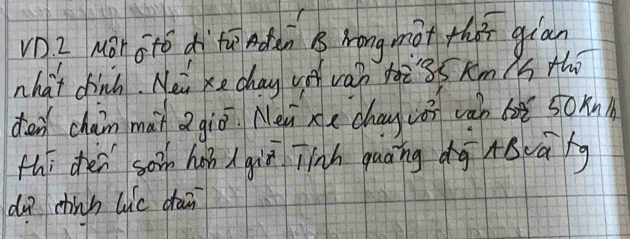 VD.2 Một ô tô đi từ A đến B trong một thời gian
nhất định. Nếu xe chạy với vận tốc 35 km/h thì
đến chậm mất 2 giờ. Nếu xe chạy với vận tốc 50 km/h
thì đến sớm hơn 1 giờ. Tính quãng đg AB và tg
dự định lúc đầu